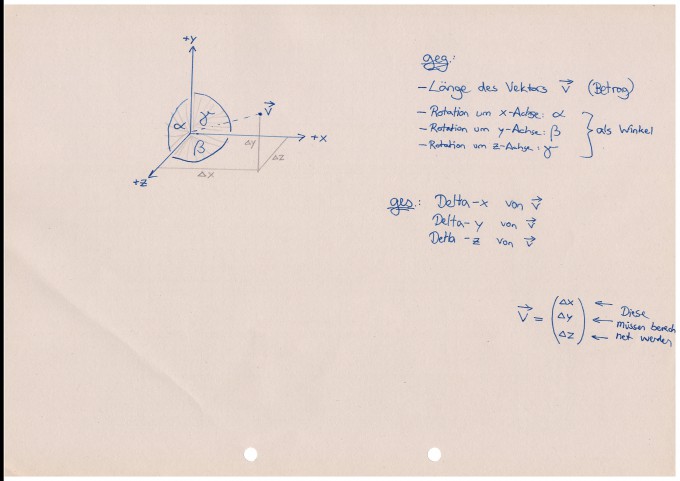 +y
α
γ
v
β
+x
Δy
Δz
Δx
+z
geg.:
- Länge des Vektors v (Betrag)
- Rotation um x-Achse: α
- Rotation um y-Achse: β
- Rotation um z-Achse: γ
als Winkel
ges.: Delta-x von v
Delta-y von v
Delta-z von v
v = (Δx
Δy
Δz)
← Diese
← müssen berech
← net werden